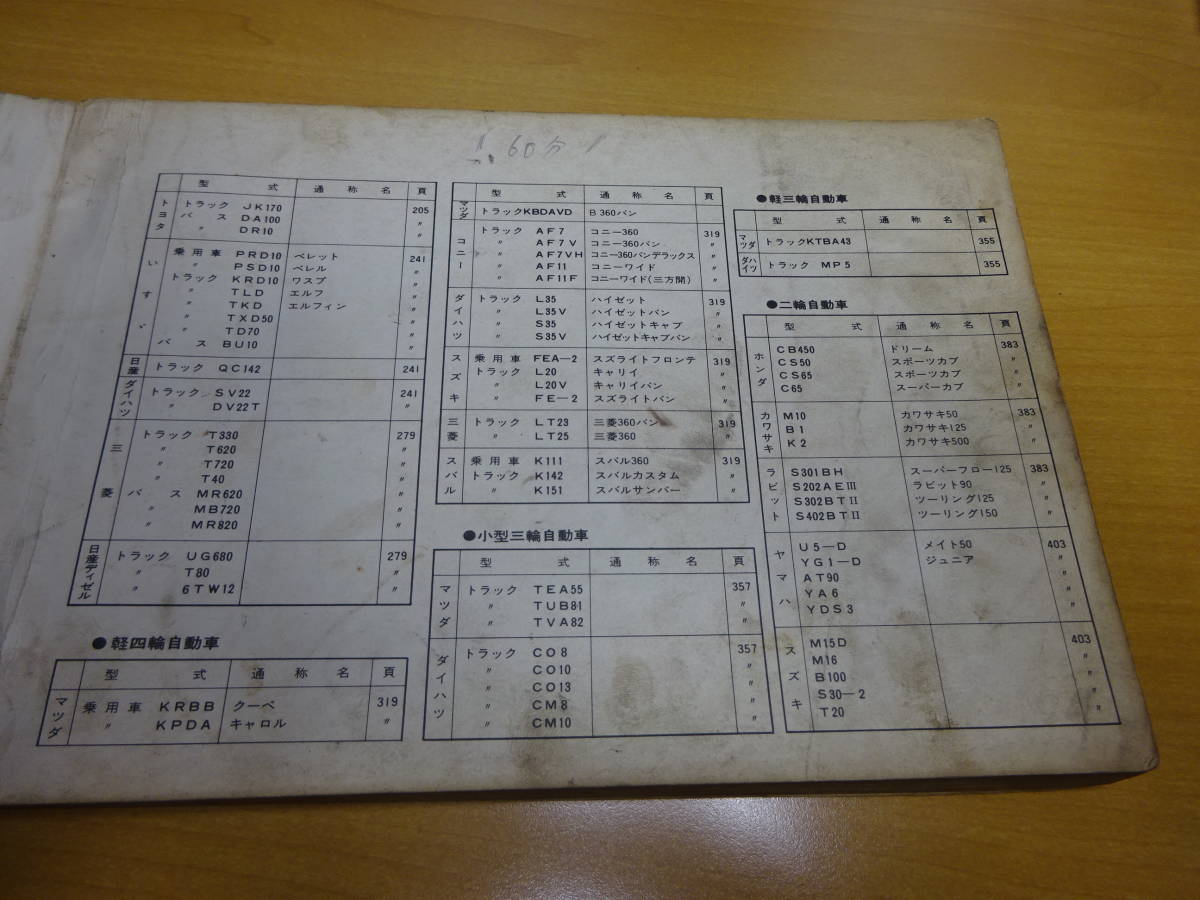 60分
型 式 通 称 名 頁
トヨタ トラック JK170 205
バ ス DA100 〃
〃 DR10 〃
いすゞ 乗用車 PRD10 ベレット 241
〃 PSD10 ベレル 〃
トラック KRD10 ワスプ 〃
〃 TLD エルフ 〃
〃 TKD エルフィン 〃
〃 TXD50 〃
〃 TD70 〃
バ ス BU10 〃
日産 トラック QC142 241
ダイハツ トラック SV22 241
〃 DV22T 〃
三菱 トラック T330 279
〃 T620 〃
〃 T720 〃
〃 T40 〃
バ ス MR620 〃
〃 MB720 〃
〃 MR820 〃
日産ディゼル トラック UG680 279
〃 T80 〃
〃 6TW12 〃
●軽四輪自動車
型 式 通 称 名 頁
マツダ 乗用車 KRBB クーペ 319
〃 KPDA キャロル 〃
型 式 通 称 名 頁
マツダ トラックKBDAVD B360バン
コニー トラック AF7 コニー360 319
〃 AF7V コニー360バン 〃
〃 AF7VH コニー360バンデラックス 〃
〃 AF11 コニーワイド 〃
〃 AF11F コニーワイド(三方開) 〃
ダイハツ トラック L35 ハイゼット 319
〃 L35V ハイゼットバン 〃
〃 S35 ハイゼットキャブ 〃
〃 S35V ハイゼットキャブバン 〃
スズキ 乗用車 FEA-2 スズライトフロンテ 319
トラック L20 キャリイ 〃
〃 L20V キャリイバン 〃
〃 FE-2 スズライトバン 〃
三菱 トラック LT23 三菱360バン 319
〃 LT25 三菱360 〃
スバル 乗用車 K111 スバル360 319
トラック K142 スバルカスタム 〃
〃 K151 スバルサンバー 〃
●小型三輪自動車
型 式 通 称 名 頁
マツダ トラック TEA55 357
〃 TUB81 〃
〃 TVA82 〃
ダイハツ トラック CO8 357
〃 CO10 〃
〃 CO13 〃
〃 CM8 〃
〃 CM10 〃
●軽三輪自動車
型 式 通 称 名 頁
マツダ トラックKTBA43 355
ダイハツ トラック MP5 355
●二輪自動車
型 式 通 称 名 頁
ホンダ CB450 ドリーム 383
CS50 スポーツカブ 〃
CS65 スポーツカブ 〃
C65 スーパーカブ 〃
カワサキ M10 カワサキ50 383
B1 カワサキ125 〃
K2 カワサキ500 〃
ラビット S301BH スーパーフロー125 383
S202AEⅢ ラビット90 〃
S302BTⅡ ツーリング125 〃
S402BTⅡ ツーリング150 〃
ヤマハ U5-D メイト50 403
YG1-D ジュニア 〃
AT90 〃
YA6 〃
YDS3 〃
スズキ M15D 403
M16 〃
B100 〃
S30-2 〃
T20 〃